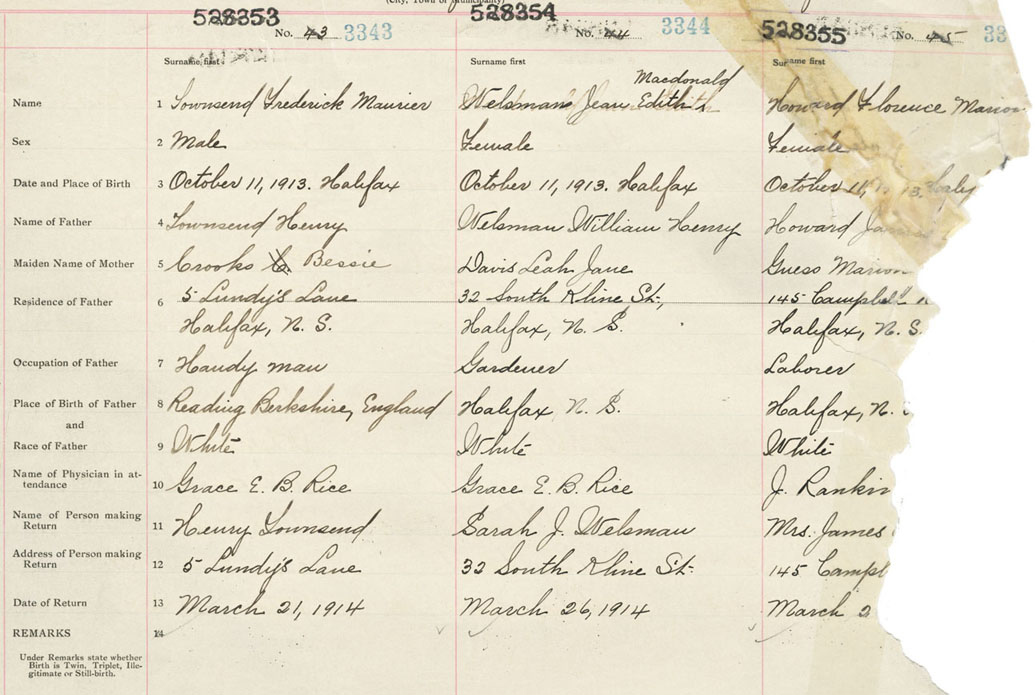 (City, Town or Municipality)
528353 528354 528355
No. 43 3343 No. 44 3344 No. 45 33
Surname first Surname first Surname first
Macdonald
Name 1 Townsend Frederick Maurier Welsman Jean Edith Howard Florence Marion
Sex 2 Male Female Female
Date and Place of Birth 3 October 11, 1913. Halifax October 11, 1913. Halifax October 11, 1913. Halif
Name of Father 4 Townsend Henry Welsman William Henry Howard Jam
Maiden Name of Mother 5 Crooks Bessie Davis Leah Jane Guess Marion
Residence of Father 6 5 Lundy's Lane 32 South Kline St., 145 Campbell
Halifax, N. S. Halifax, N. S. Halifax, N. S.
Occupation of Father 7 Handy man Gardener Laborer
Place of Birth of Father 8 Reading Berkshire, England Halifax, N. S. Halifax, N.
and
Race of Father 9 White White White
Name of Physician in at-
tendance 10 Grace E. B. Rice Grace E. B. Rice J. Rankin
Name of Person making
Return 11 Henry Townsend Sarah J. Welsman Mrs. James
Address of Person making
Return 12 5 Lundy's Lane 32 South Kline St. 145 Campb
Date of Return 13 March 21, 1914 March 26, 1914 March 2
REMARKS 14
Under Remarks state whether
Birth is Twin, Triplet, Ille-
gitimate or Still-birth.